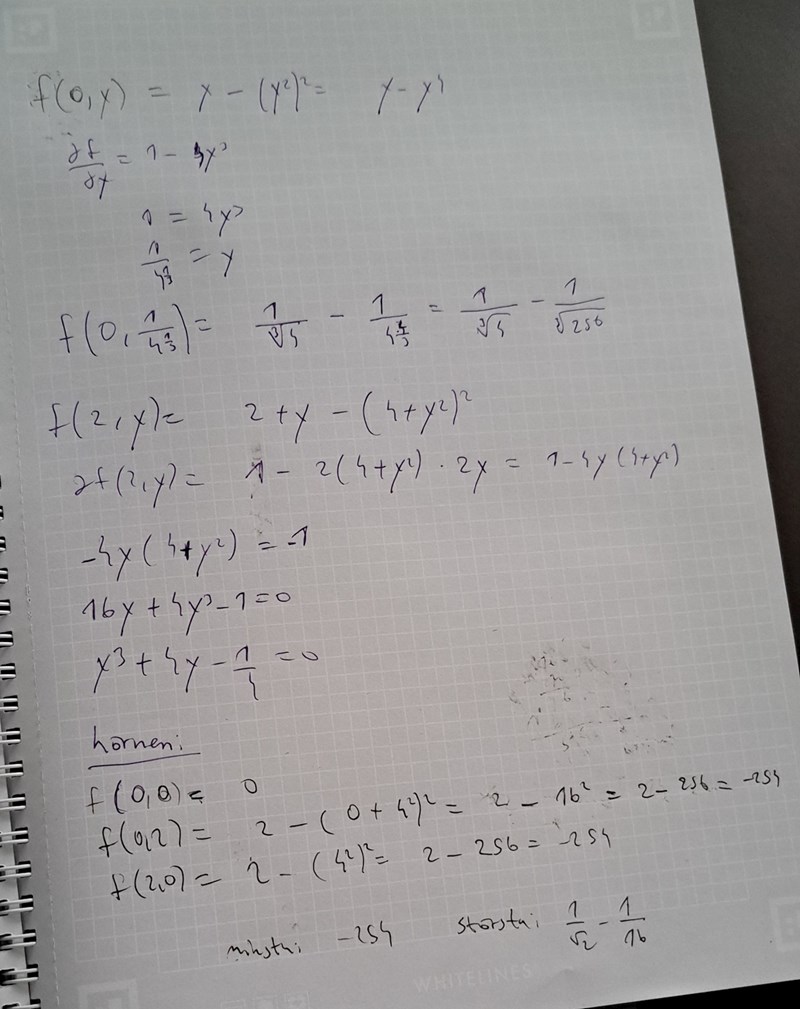 f(0,y) = y − (y²)² = y − y⁴
∂f/∂y = 1 − 4y³
1 = 4y³
1/4^(1/3) = y
f(0, 1/4^(1/3)) = 1/∛4 − 1/4^(4/3) = 1/∛4 − 1/∛256
f(2,y) = 2 + y − (4+y²)²
∂f(2,y) = 1 − 2(4+y²) · 2y = 1 − 4y(4+y²)
−4y(4+y²) = −1
16y + 4y³ − 1 = 0
y³ + 4y − 1/4 = 0
hörnen:
f(0,0) = 0
f(0,2) = 2 − (0 + 4²)² = 2 − 16² = 2 − 256 = −254
f(2,0) = 2 − (4²)² = 2 − 256 = −254
minsta: −254 största: 1/√2 − 1/16
WHITELINES